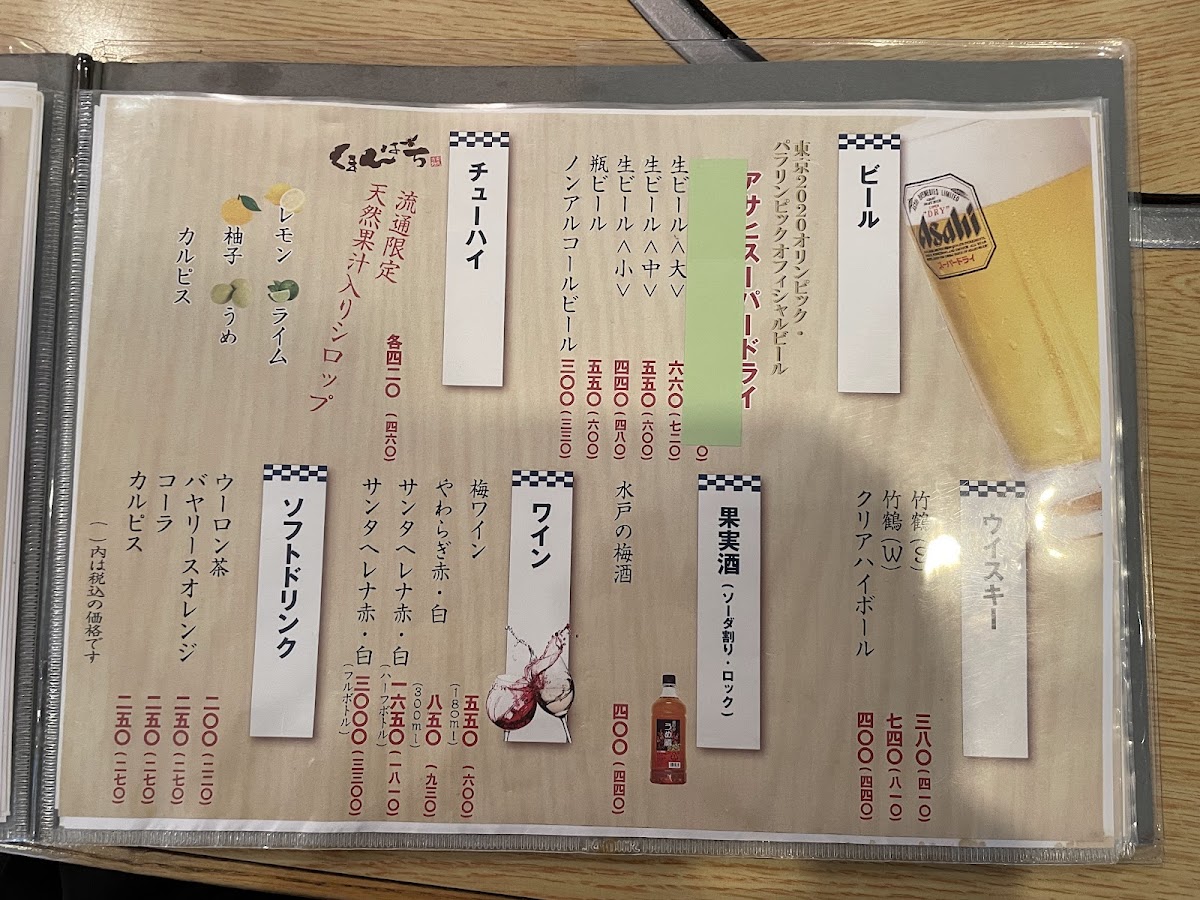 ビール
東京2020オリンピック・
パラリンピックオフィシャルビール
アサヒスーパードライ
生ビール<大> 六六〇(七二〇)
生ビール<中> 五五〇(六〇〇)
生ビール<小> 四四〇(四八〇)
瓶ビール 五五〇(六〇〇)
ノンアルコールビール 三〇〇(三三〇)
チューハイ
くまんばち
流通限定
天然果汁入りシロップ
各四二〇(四六〇)
レモン
ライム
柚子
うめ
カルピス
Asahi
"DRY"
スーパードライ
ウイスキー
竹鶴(S) 三八〇(四一〇)
竹鶴(W) 七四〇(八一〇)
クリアハイボール 四〇〇(四四〇)
果実酒(ソーダ割り・ロック)
水戸の梅酒 四〇〇(四四〇)
ワイン
梅ワイン (180ml) 五五〇(六〇〇)
やわらぎ赤・白 (300ml) 八五〇(九三〇)
サンタヘレナ赤・白 (ハーフボトル) 一六五〇(一八一〇)
サンタヘレナ赤・白 (フルボトル) 三〇〇〇(三三〇〇)
ソフトドリンク
ウーロン茶 二〇〇(二二〇)
バヤリースオレンジ 二五〇(二七〇)
コーラ 二五〇(二七〇)
カルピス 二五〇(二七〇)
( )内は税込の価格です